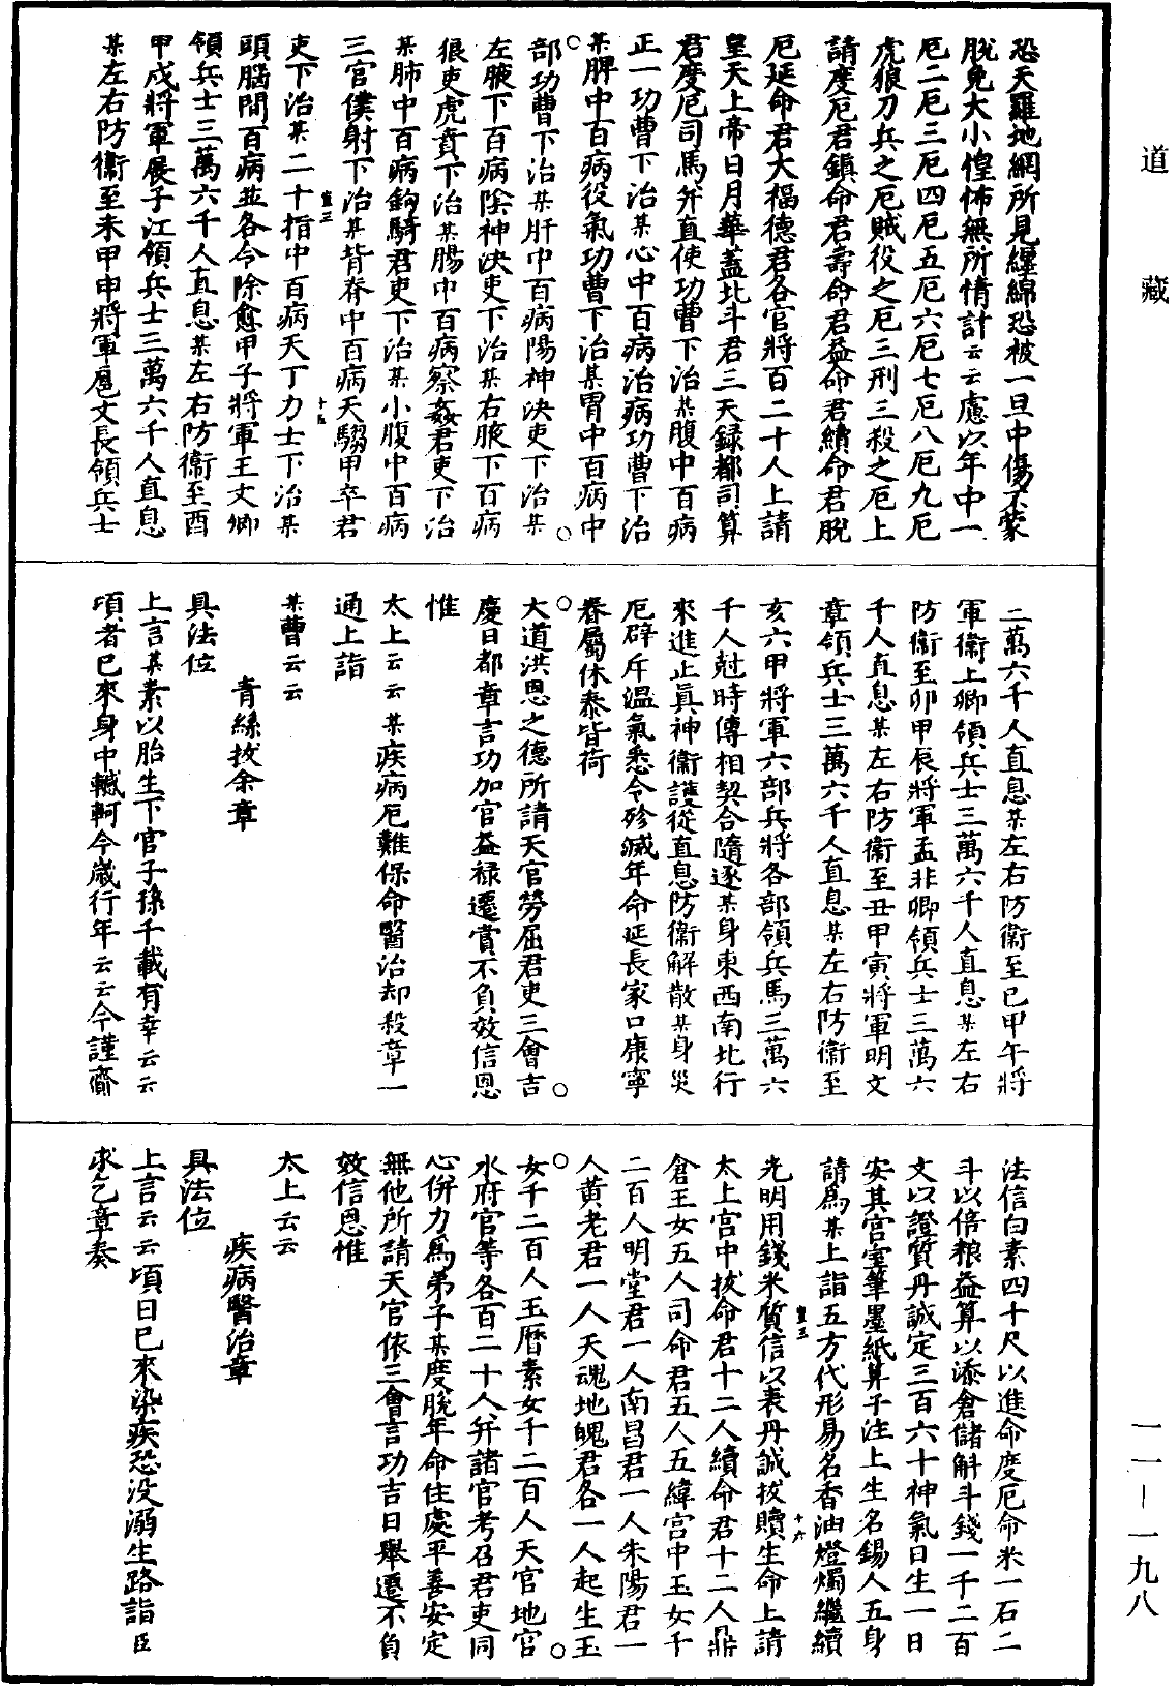 道藏
恐天羅地網所見纏綿恐被一旦中傷不蒙
脫免大小惶怖無所情計云云慮以年中一
厄二厄三厄四厄五厄六厄七厄八厄九厄
虎狼刀兵之厄賊役之厄三刑三殺之厄上
請度厄君鎮命君壽命君益命君續命君脫
厄延命君大福德君各官將百二十人上請
皇天上帝日月華蓋北斗君三天錄都司筭
君度厄司馬并直使功曹下治某腹中百病
正一功曹下治某心中百病治病功曹下治
某脾中百病役氣功曹下治某胃中百病中
部功曹下治某肝中百病陽神決吏下治某
左腋下百病陰神決吏下治某右腋下百病
狼吏虎賁下治某腸中百病察姦君吏下治
某肺中百病鈎騎君吏下治某小腹中百病
三官僕射下治某背脊中百病天騶甲卒君
吏下治某二十指中百病天丁力士下治某
頭腦間百病並各令除愈甲子將軍王文卿
領兵士三萬六千人直息某左右防衛至酉
甲戌將軍展子江領兵士三萬六千人直息
某左右防衛至未甲申將軍扈文長領兵士
三萬六千人直息某左右防衛至巳甲午將
軍衛上卿領兵士三萬六千人直息某左右
防衛至卯甲辰將軍孟非卿領兵士三萬六
千人直息某左右防衛至丑甲寅將軍明文
章領兵士三萬六千人直息某左右防衛至
亥六甲將軍六部兵將各部領兵馬三萬六
千人尅時傳相契合隨逐某身東西南北行
來進止真神衛護從直息防衛解散某身災
厄辟斥溫氣悉令殄滅年命延長家口康寧
眷屬休泰皆荷
大道洪恩之德所請天官勞屈君吏三會吉
慶日都章言功加官益祿遷賞不負效信恩
惟
太上云云某疾病厄難保命醫治却殺章一
通上詣
某曹云云
青絲拔命章
具法位
上言某素以胎生下官子孫千載有幸云云
項者已來身中轗軻今歲行年云云今謹齎
法信白素四十尺以進命度厄命米一石二
斗以倍粮益筭以添倉儲斛斗錢一千二百
文以證質丹誠定三百六十神氣日生一日
安其宮室筆墨紙筭子注上生名錫人五身
請為某上詣五方代形易名香油燈燭繼續
光明用錢米質信以表丹誠拔贖生命上請
太上宮中拔命君十二人續命君十二人鼎
倉王女五人司命君五人五緯宮中玉女千
二百人明堂君一人南昌君一人朱陽君一
人黃老君一人天魂地魄君各一人起生玉
女千二百人玉曆素女千二百人天官地官
水府官等各百二十人并諸官考召君吏同
心併力為弟子某度脫年命住處平善安定
無他所請天官依三會言功吉日舉遷不負
效信恩惟
太上云云
疾病醫治章
具法位
上言云云項日已來染疾恐没溺生路詣臣
求乞章奏
一一—一九八